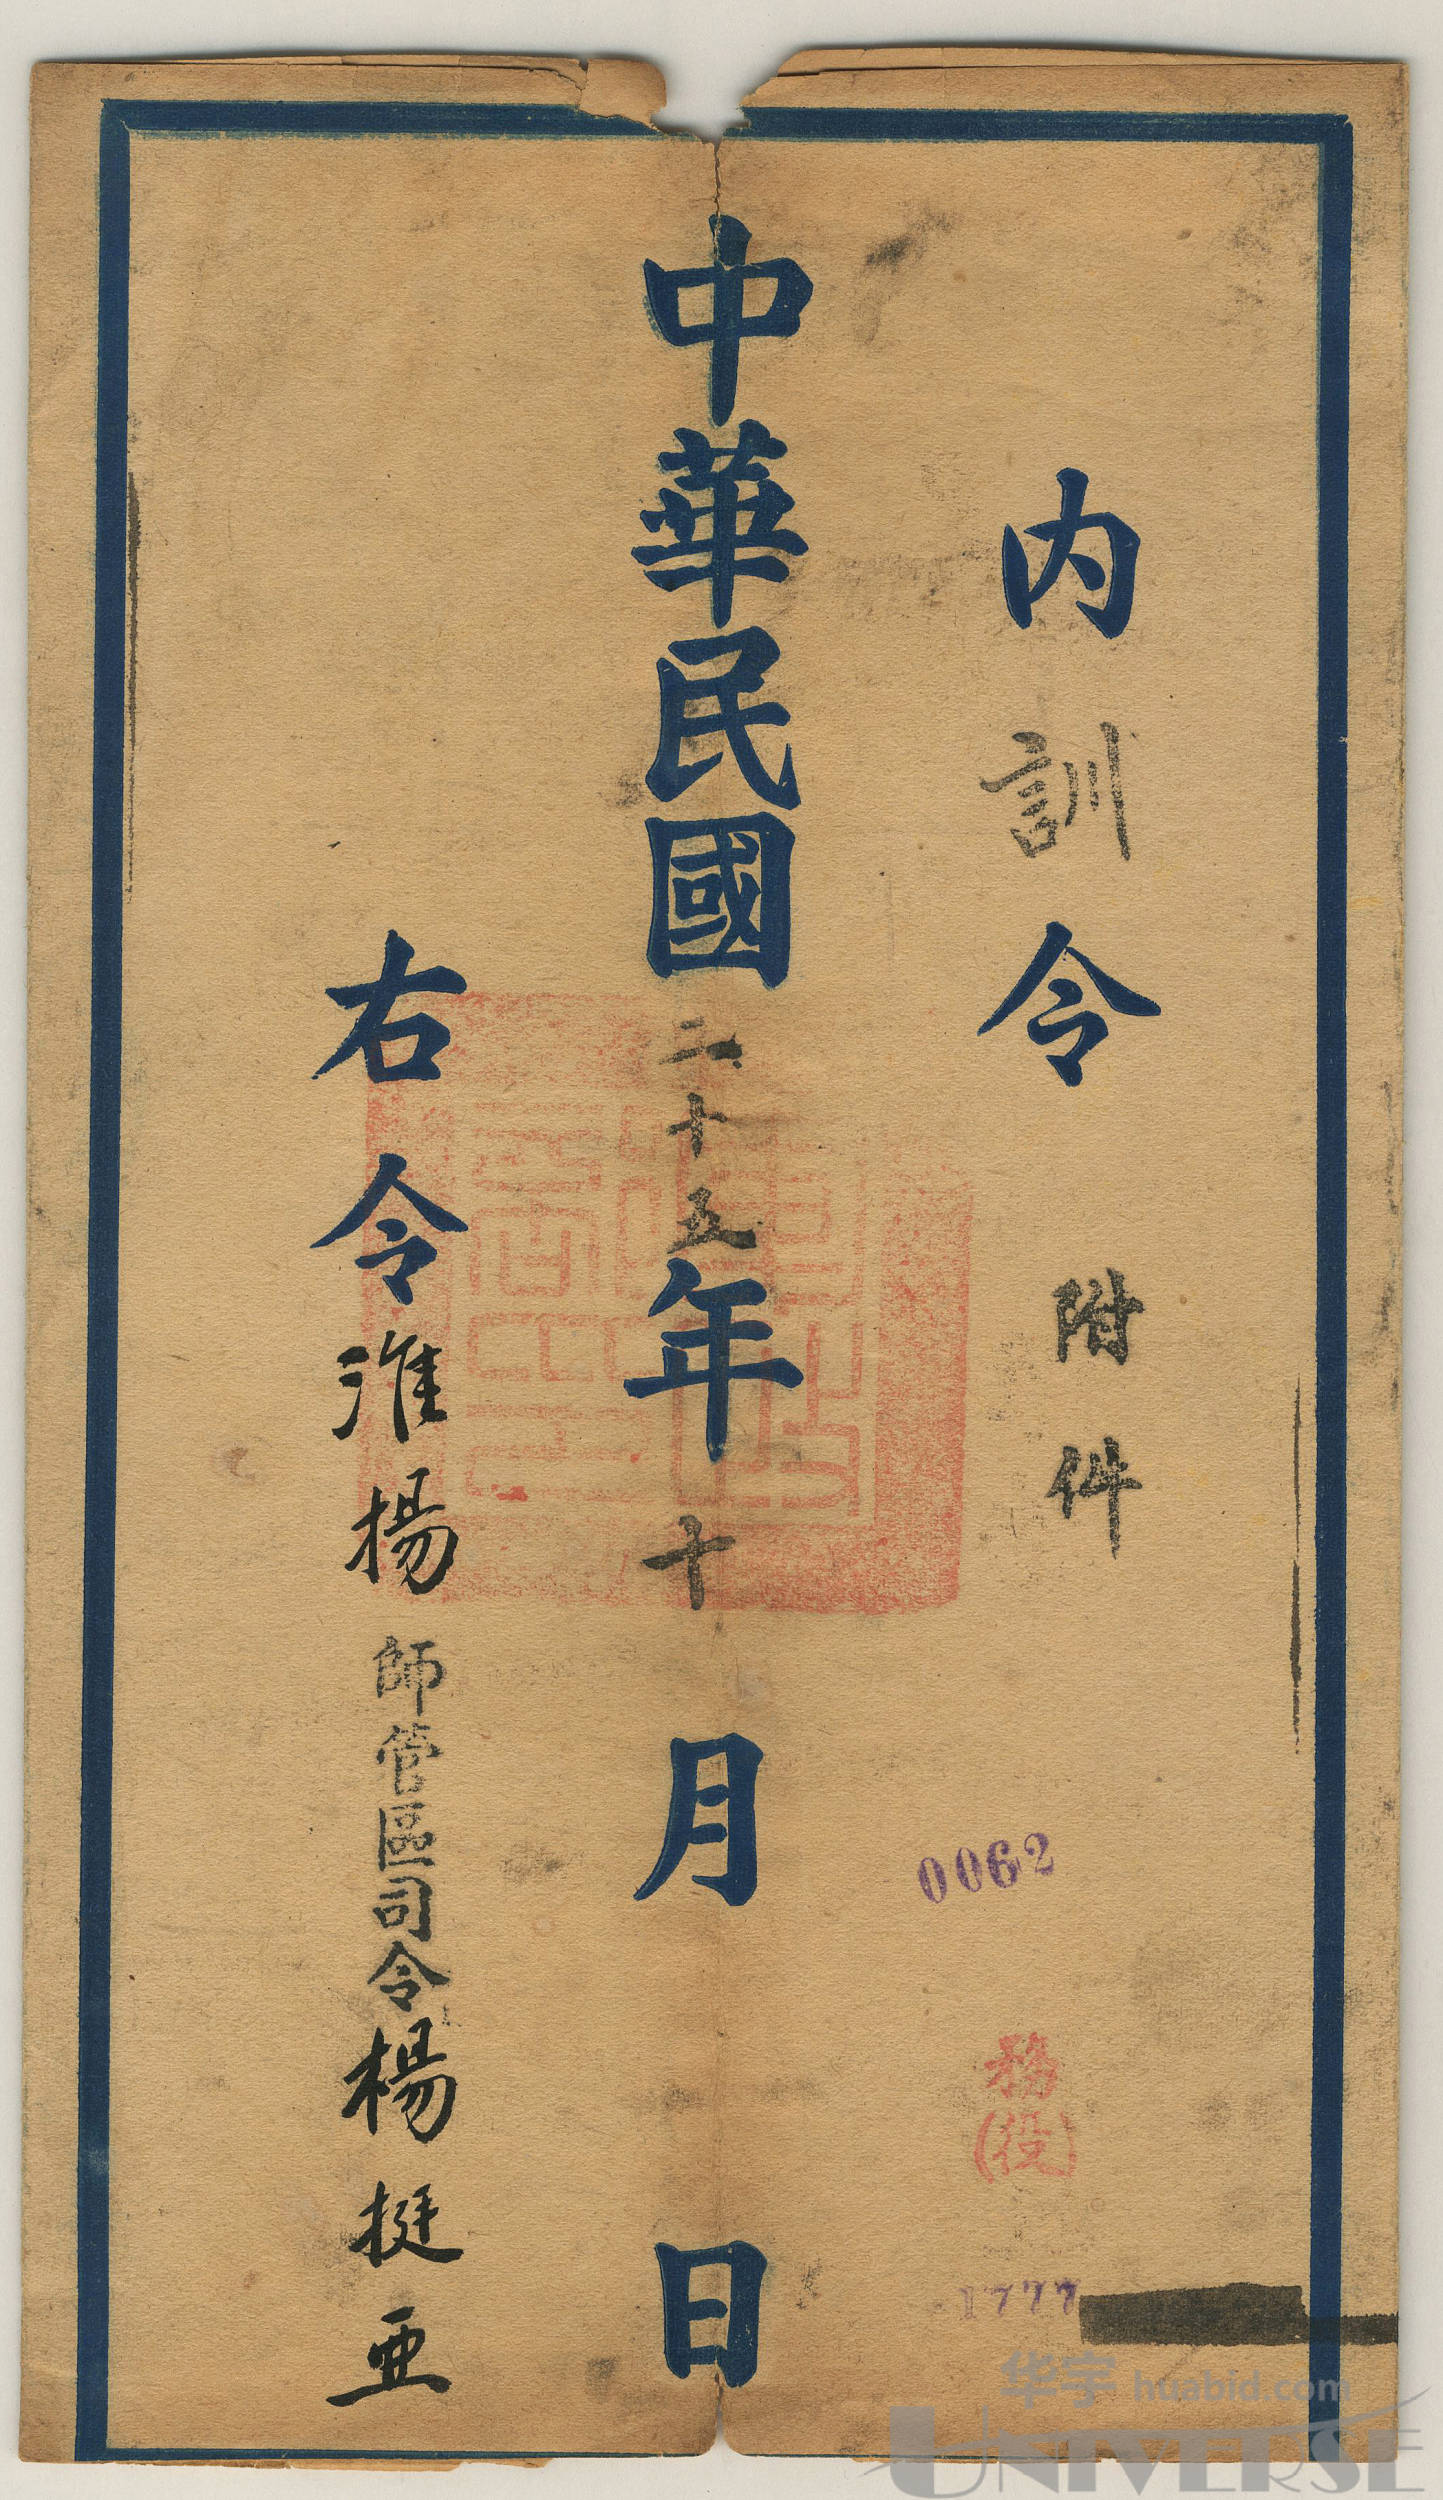 内訓令 附件
0062
務
(役)
1777
中華民國二十五年十月 日
右令淮揚師管區司令楊挺亞
华宇 huabid.com
UNIVERSE